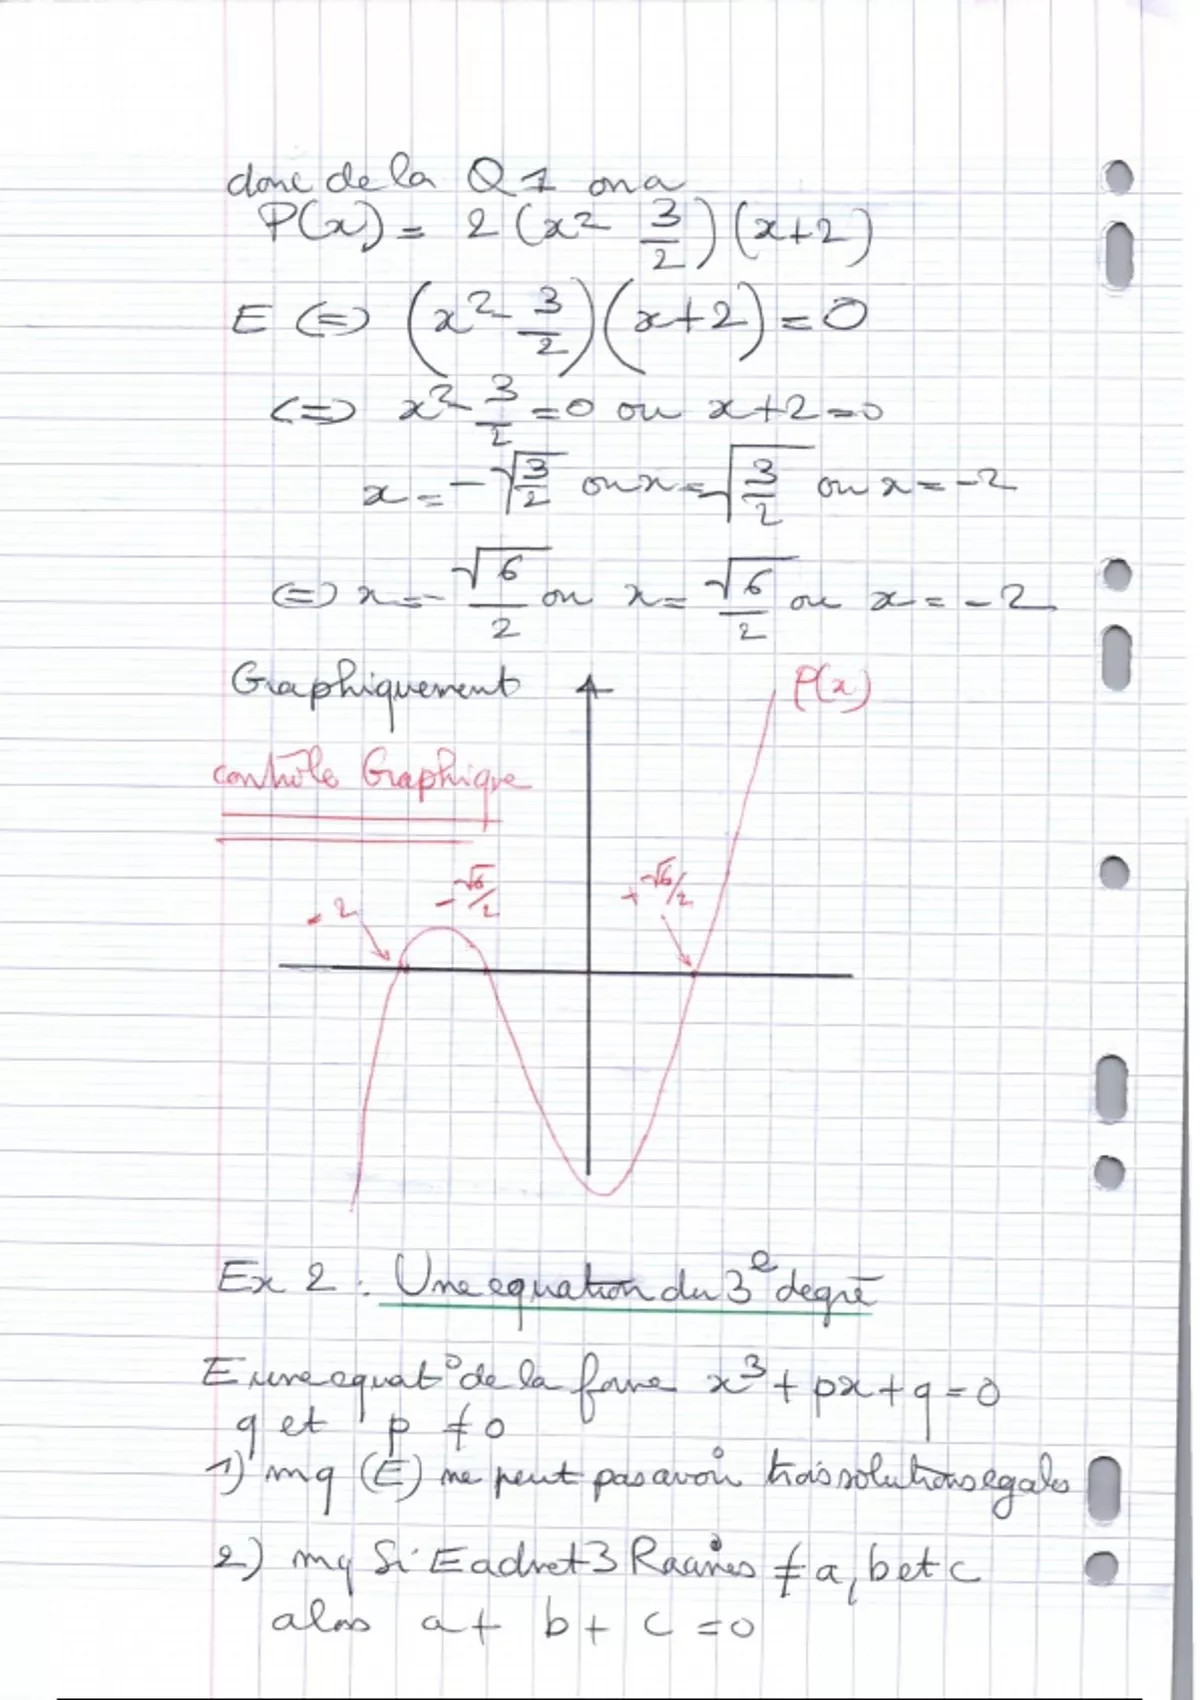 donc de la Q1 on a
P(x) = 2 (x² - 3/2)(x+2)
E <=> (x² - 3/2)(x+2) = 0
<=> x² - 3/2 = 0 ou x+2 = 0
x = -√(3/2) ou x = √(3/2) ou x = -2
<=> x = -√6/2 ou x = √6/2 ou x = -2
Graphiquement
P(x)
contrôle Graphique
-2
-√6/2
+√6/2
Ex 2 : Une equation du 3e degré
E une equat° de la forme x³ + px + q = 0
q et p ≠ 0
1) mq (E) ne peut pas avoir trois solutions egales
2) mq Si E admet 3 Racines ≠ a, b et c
alors a + b + c = 0